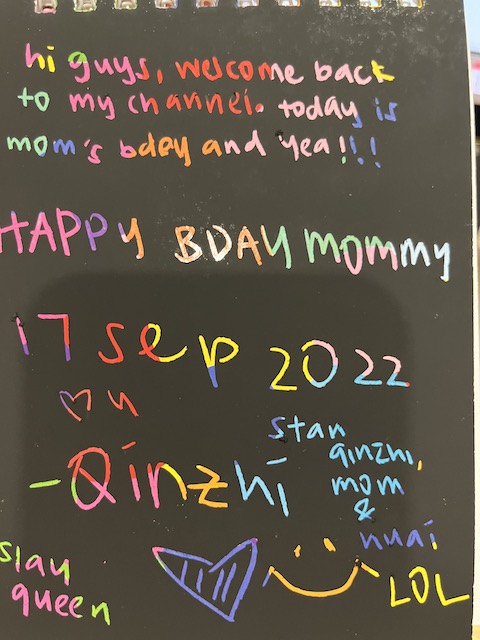 hi guys, welcome back
to my channel. today is
mom's bday and yea!!!
HAPPY BDAY MOMMY
17 sep 2022
♡ u
stan
qinzhi,
mom
&
huai
-Qinzhi
slay
queen
LOL